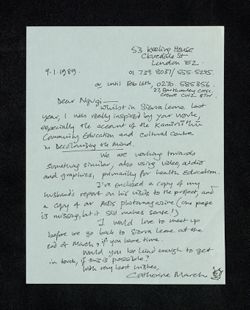 53 Keeling House
Claredale St
London E2.
9.1.1989.
01 729 8037/ 555-5245.
@ until Feb 16th, 0270 585356
Dear Ngugi —
Whilst in Sierra Leone last
year, I was really inspired by your work,
especially the account of the Kamiriithu
Community Education and Cultural Centre
in Decolonising the Mind.
We are working towards
something similar, also using video, audio
and graphics, primarily for health education.
I've enclosed a copy of my
husband's report on his visits to the project, and
a copy of our AIDS photomagazine (one page
is missing, but it still makes sense!)
I would love to meet up
before we go back to Sierra Leone at the
end of March, if you have time.
Would you be kind enough to get
in touch, if this is possible?
With very best wishes,
Catherine March